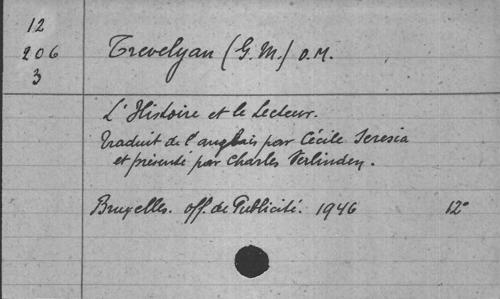 12
206
3
Trevelyan (G. M.) O.M.
L'Histoire et le Lecteur.
Traduit de l'anglais par Cécile Seresia
et présenté par Charles Verlinden.
Bruxelles. Off. de Publicité. 1946 12°